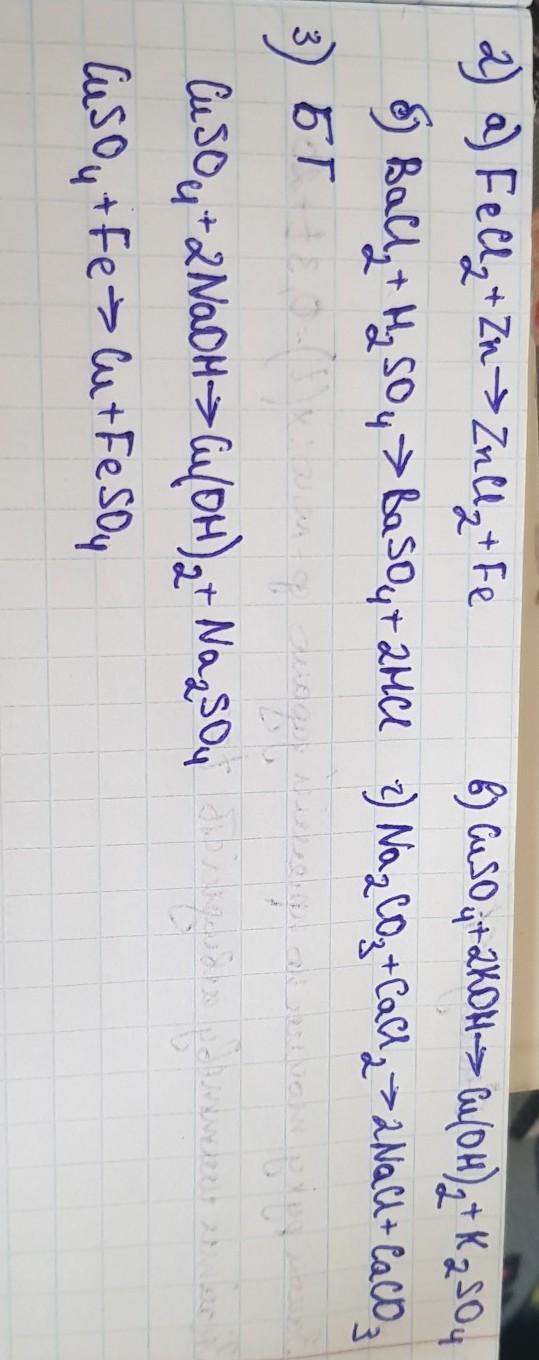 2) а) FeCl₂ + Zn → ZnCl₂ + Fe в) CuSO₄ + 2KOH → Cu(OH)₂ + K₂SO₄
б) BaCl₂ + H₂SO₄ → BaSO₄ + 2HCl г) Na₂CO₃ + CaCl₂ → 2NaCl + CaCO₃
3) БГ
CuSO₄ + 2NaOH → Cu(OH)₂ + Na₂SO₄
CuSO₄ + Fe → Cu + FeSO₄